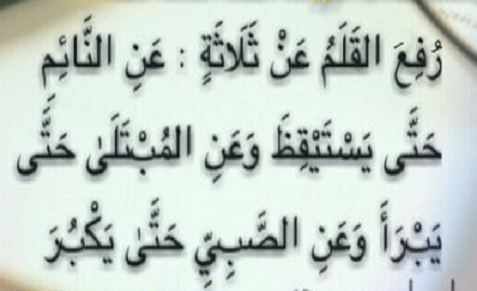 رُفِعَ القَلَمُ عَنْ ثَلاثَةٍ : عَنِ النَّائِمِ
حَتَّى يَسْتَيْقِظَ وَعَنِ المُبْتَلَىٰ حَتَّى
يَبْرَأَ وَعَنِ الصَّبِيِّ حَتَّىٰ يَكْبُرَ